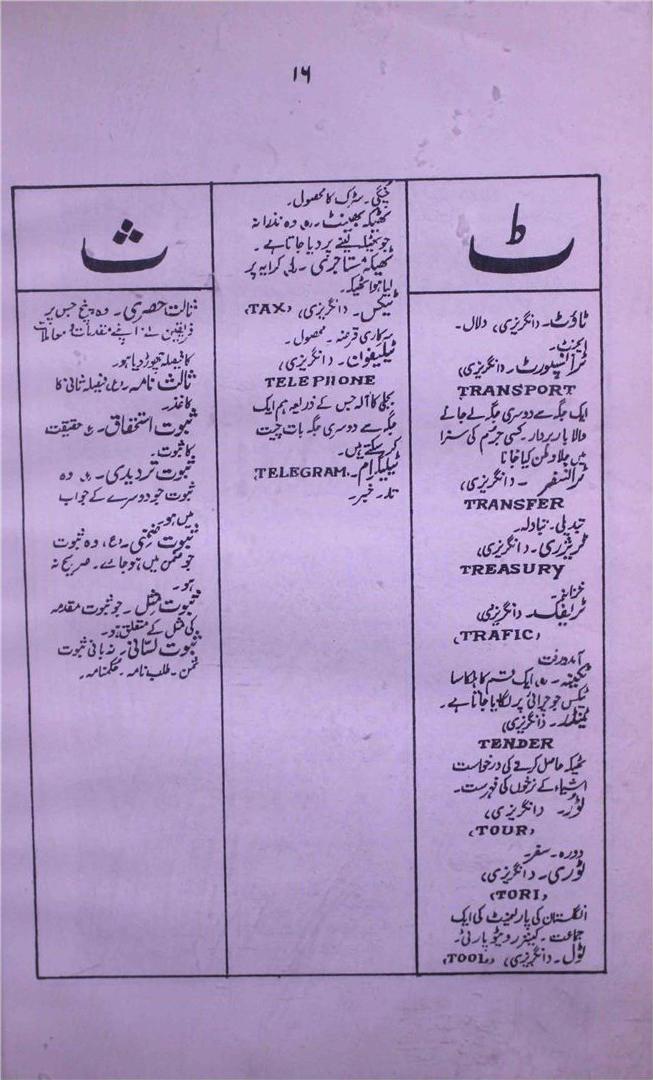 ۱۶
ٹ
ٹاؤٹ۔ (انگریزی) دلال۔
ایجنٹ۔
ٹرانسپورٹ۔ (انگریزی)
TRANSPORT
ایک جگہ سے دوسری جگہ لے جانے
والا باربردار۔ کسی جرم کی سزا
میں جلاوطن کیا جانا
ٹرانسفر۔ (انگریزی)
TRANSFER
تبدیلی۔ تبادلہ۔
ٹریژری۔ (انگریزی)
TREASURY
خزانہ۔
ٹریفک۔ (انگریزی)
(TRAFIC)
آمدورفت
ایک قسم کا ہلکا سا
ٹیکس جو چرائی پر لگایا جاتا ہے۔
ٹینڈر۔ (انگریزی)
TENDER
ٹھیکہ حاصل کرنے کی درخواست
اشیاء کے نرخوں کی فہرست۔
ٹور۔ (انگریزی)
(TOUR)
دورہ۔ سفر۔
ٹوری۔ (انگریزی)
(TORI)
انگلستان کی پارلیمنٹ کی ایک
جماعت۔ کینزرویٹو پارٹی۔
ٹول۔ (انگریزی) (TOOL)
چنگی۔ سڑک کا محصول۔
ٹھیکہ بھینٹ۔ (ہ) وہ نذرانہ
جو ٹھیکہ لینے پر دیا جاتا ہے۔
ٹھیکہ مستاجری۔ کرایہ پر
لیا ہوا ٹھیکہ۔
ٹیکس۔ (انگریزی) (TAX)
سرکاری قرضہ۔ محصول۔
ٹیلیفون۔ (انگریزی)
TELEPHONE
بجلی کا آلہ جس کے ذریعہ ہم ایک
جگہ سے دوسری جگہ بات چیت
کر سکتے ہیں۔
ٹیلیگرام۔ (TELEGRAM.
تار۔ خبر۔
ث
ثالث حصری۔ وہ پنچ جس پر
فریقین نے اپنے مقدمات و معاملات
کا فیصلہ چھوڑ دیا ہو۔
ثالث نامہ۔ (ع) فیصلہ ثالثی کا
کاغذ۔
ثبوت استحقاق۔ (ع) حقیقت
کا ثبوت۔
ثبوت تردیدی۔ وہ
ثبوت جو دوسرے کے جواب
میں ہو۔
ثبوت ضمنی۔ (ع) وہ ثبوت
جو ضمن میں ہو جائے۔ صریح نہ
ہو۔
ثبوت مثل۔ جو ثبوت مقدمہ
کی مثل کے متعلق ہو۔
ثبوت لسانی۔ زبانی ثبوت
ثمن۔ طلب نامہ۔ حکمنامہ۔